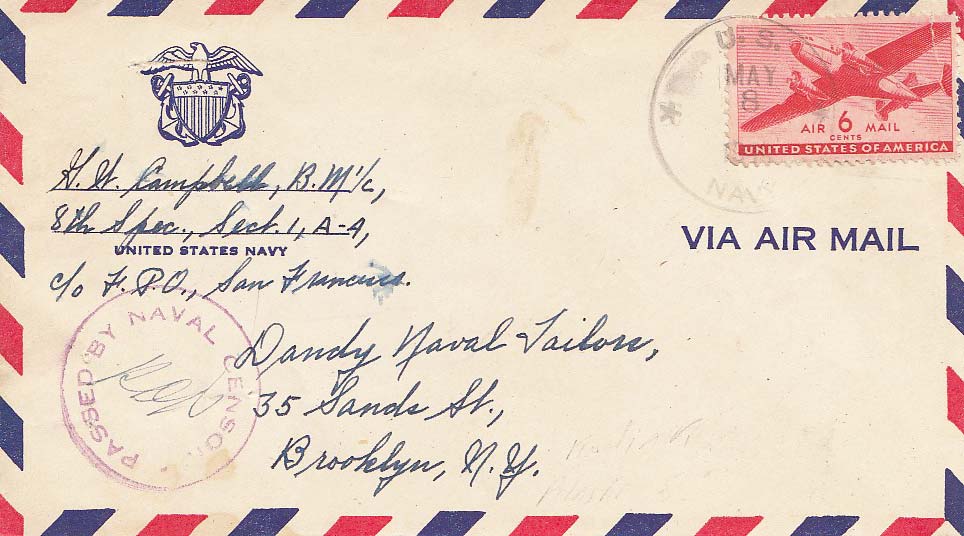 U. S.
MAY
8
NAVY
AIR 6 MAIL
CENTS
UNITED STATES OF AMERICA
H. W. Campbell, B.M 1/c,
8th Spec., Sect. 1, A-A,
UNITED STATES NAVY
c/o F.P.O., San Francisco.
VIA AIR MAIL
PASSED BY NAVAL CENSOR
Dandy Naval Tailors,
35 Sands St.,
Brooklyn, N.Y.